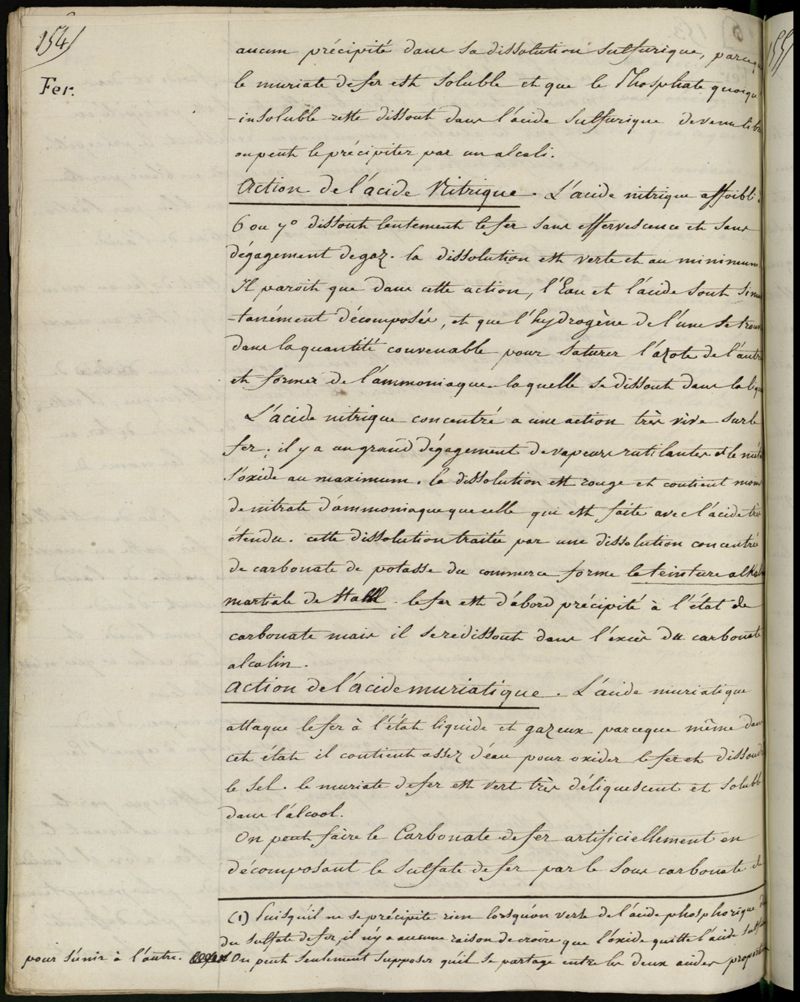 154
Fer.
aucun précipité dans sa dissolution sulfurique, parce
le muriate de fer est soluble et que le Phosphate quoiqu
-insoluble reste dissout dans l'acide sulfurique devenu lib
on peut le précipiter par un alcali.
Action de l'acide Nitrique. L'acide nitrique affoibli
6 ou 7° dissout lentement le fer sans effervescence et sans
dégagement de gaz. la dissolution est verte et au minimum
Il paroit que dans cette action, l'Eau et l'acide sont simul
-tanément décomposés, et que l'hydrogène de l'une se trouv
dans la quantité convenable pour saturer l'azote de l'autre
et former de l'ammoniaque laquelle se dissout dans la liq
L'acide nitrique concentré a une action très vive sur le
fer; il y a un grand dégagement de vapeurs rutilantes et le mét
s'oxide au maximum. la dissolution est rouge et contient moins
de nitrate d'ammoniaque que celle qui est faite avec l'acide trè
étendu. cette dissolution traitée par une dissolution concentrée
de carbonate de potasse du commerce forme la teinture alkali
martiale de Stahl. le fer est d'abord précipité à l'état de
carbonate mais il se redissout dans l'excès du carbonate
alcalin.
Action de l'acide muriatique. L'acide muriatique
attaque le fer à l'état liquide et gazeux parceque même dans
cet état il contient assez d'eau pour oxider le fer et dissoudr
le sel. le muriate de fer est vert très déliquescent et soluble
dans l'alcool.
On peut faire le Carbonate de fer artificiellement en
décomposant le sulfate de fer par le sous carbonate de
(1) Puisqu'il ne se précipite rien lorsqu'on verse de l'acide phosphorique da
du sulfate de fer, il n'y a aucune raison de croire que l'oxide quitte l'acide sulfur
pour s'unir à l'autre. On peut seulement supposer qu'il se partage entre les deux acides proportion